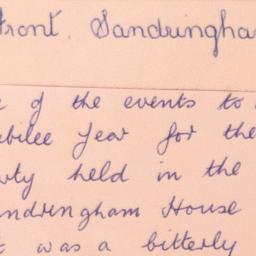 front. Sandringha
of the events to
bilee Year for the
ty held in the
ndringham House
was a bitterly